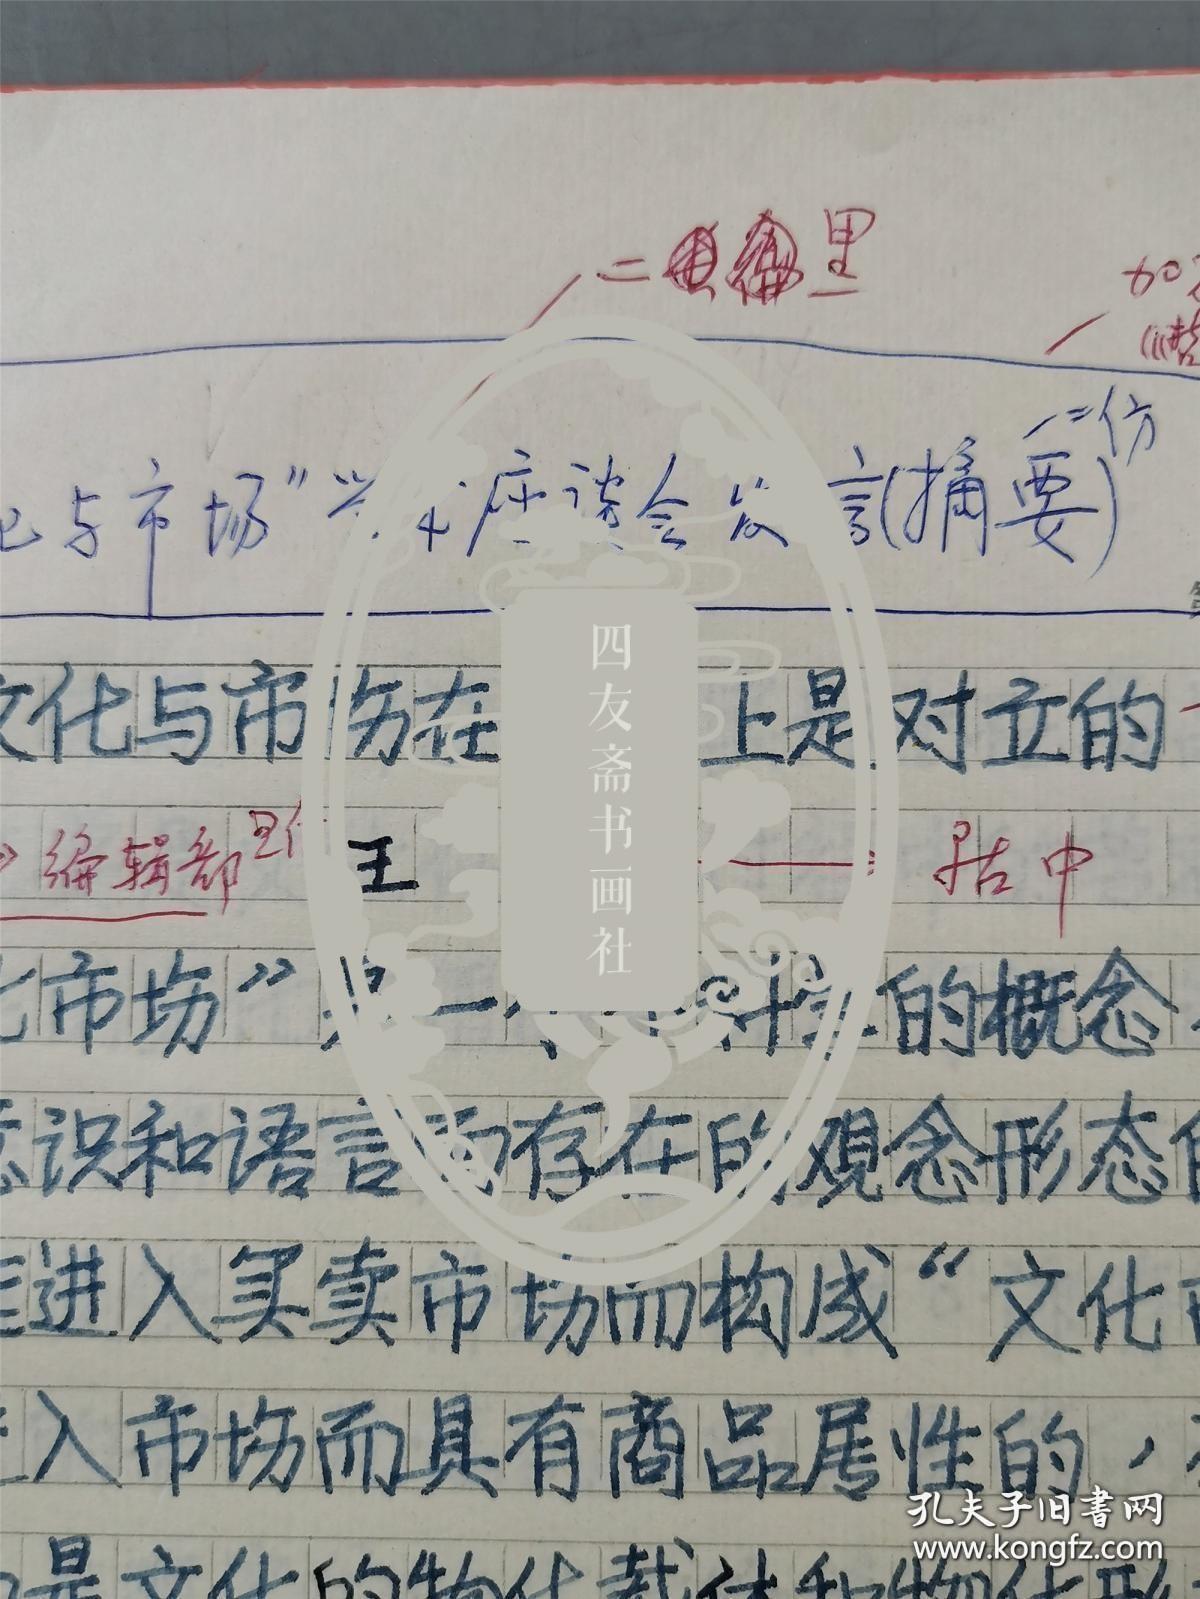 二 黑
加
二仿
化与市场”学术座谈会发言(摘要)
文化与市场在 上是对立的
编辑部 王 居中
化市场”是一个 科学的概念
意识和语言而存在的观念形态
进入买卖市场而构成“文化市
进入市场而具有商品属性的，
是文化的物化载体和物化形
四友斋书画社
孔夫子旧书网
www.kongfz.com